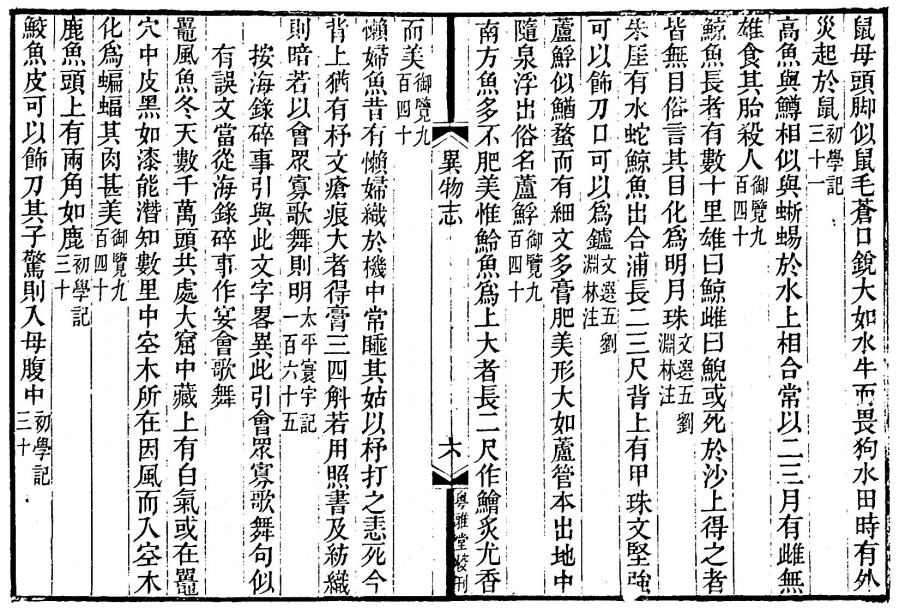 鼠母頭脚似鼠毛蒼口銳大如水牛而畏狗水田時有外
災起於鼠初學記三十一
高魚與鱒相似與蜥蜴於水上相合常以二三月有雌無
雄食其胎殺人御覽九百四十
鯨魚長者有數十里雄曰鯨雌曰鯢或死於沙上得之者
皆無目俗言其目化爲明月珠文選五劉淵林注
朱厓有水蛇鯨魚出合浦長二三尺背上有甲珠文堅強
可以飾刀口可以爲鑢文選五劉淵林注
蘆䱐似鰌蝥而有細文多膏肥美形大如蘆管本出地中
隨泉浮出俗名蘆䱐御覽九百四十
南方魚多不肥美惟鮯魚爲上大者長二尺作鱠炙尤香
異物志
六
粤雅堂校刊
而美御覽九百四十
懶婦魚昔有懶婦織於機中常睡其姑以杼打之恚死今
背上猶有杼文瘡痕大者得膏三四斛若用照書及紡織
則暗若以會眾寡歌舞則明太平寰宇記一百六十五
按海錄碎事引與此文字畧異此引會眾寡歌舞句似
有誤文當從海錄碎事作宴會歌舞
鼉風魚冬天數千萬頭共處大窟中藏上有白氣或在鼉
穴中皮黑如漆能潛知數里中空木所在因風而入空木
化爲蝙蝠其肉甚美御覽九百四十
鹿魚頭上有兩角如鹿初學記三十
鮫魚皮可以飾刀其子驚則入母腹中初學記三十